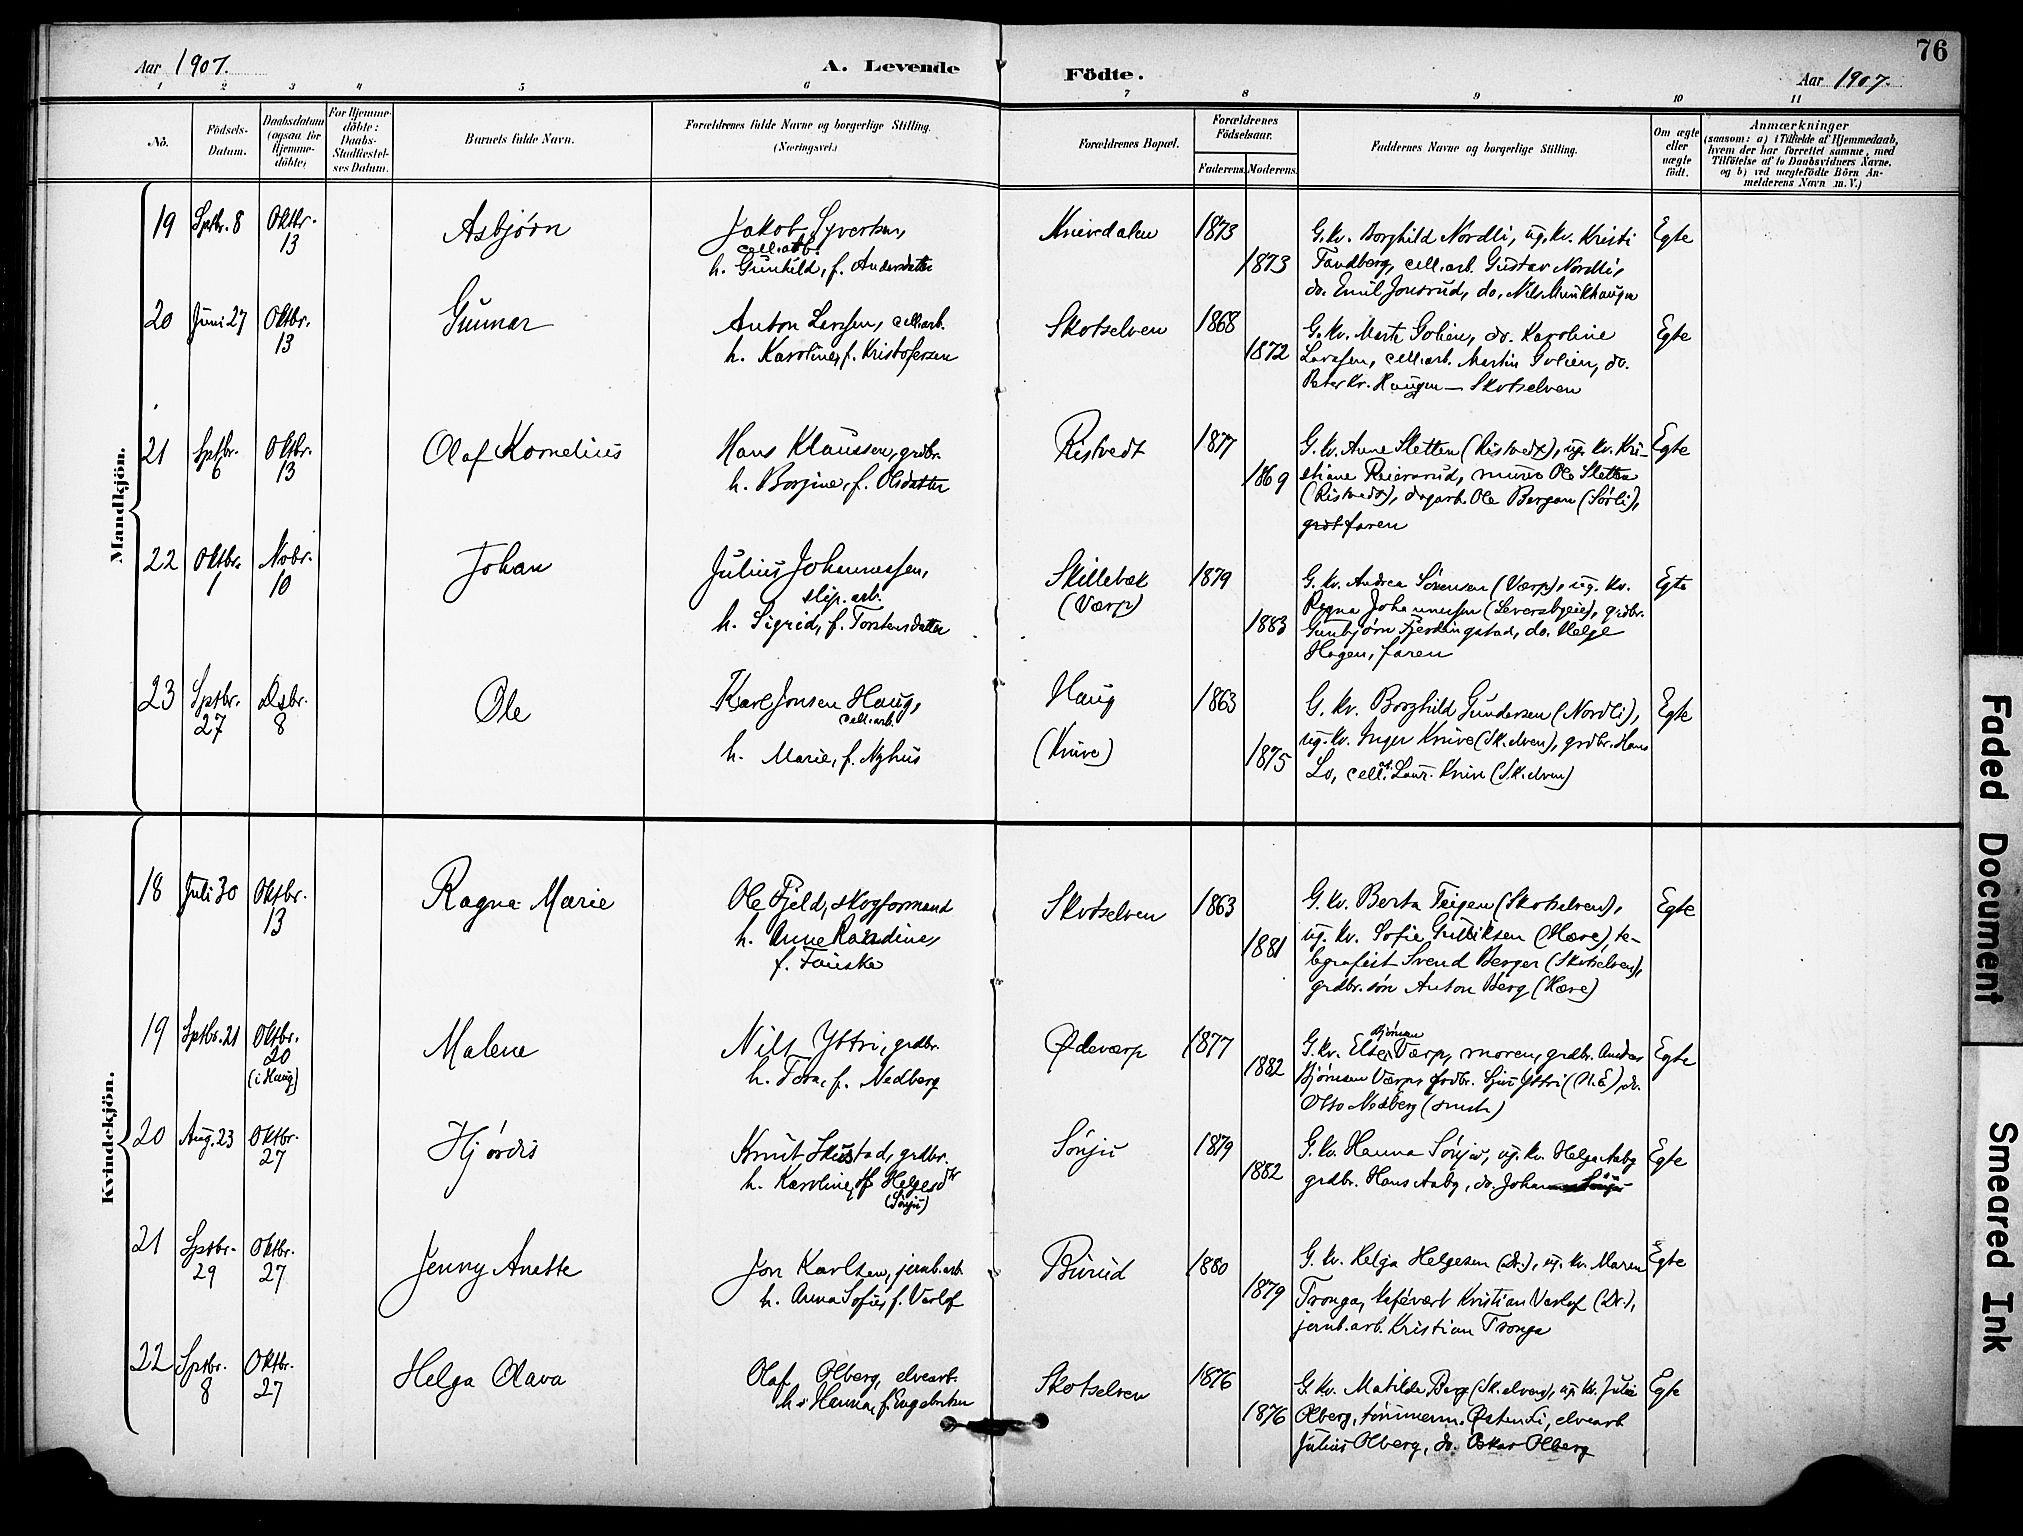 76
Aar 1907.
A. Levende Födte.
Aar 1907.
1 2 3 4 5 6 7 8 9 10 11
No.
Födsels-
Datum.
Daabsdatum
(ogsaa for
Hjemme-
döbte)
For Hjemme-
döbte:
Daabs-
Stadfæstel-
ses Datum.
Barnets fulde Navn.
Forældrenes fulde Navne og borgerlige Stilling.
(Næringsvei.)
Forældrenes Bopæl.
Forældrenes
Födselsaar.
Faderens. Moderens.
Faddernes Navne og borgerlige Stilling.
Om ægte
eller
uægte
födt.
Anmærkninger
(saasom: a) i Tilfælde af Hjemmedaab,
hvem der har forrettet samme, med
Tilföielse af to Daabsvidners Navne,
og b) ved uægtefödte Börn An-
melderens Navn m. V.)
Mandkjön.
19 Sptbr. 8 Oktbr. 13
Asbjørn
Jakob Syvertsen,
cell.arb.
h. Gunhild, f. Andersdatter
Knivedalen
1873
1873
G.kv. Borghild Nordli, ug. kv. Kristi
Tandberg, cell.arb. Gustav Nordli,
do. Emil Jonsrud, do. Nils Munkhaugen
Egte
20 Juni 27 Oktbr. 13
Gunnar
Anton Larssen, cell.arb.
h. Karoline, f. Kristofersen
Skotselven
1868
1872
G. kv. Marte Golien, do. Karoline
Larssen, cell.arb. Martin Golien, do.
Peter Kr. Haugen — Skotselven
Egte
21 Sptbr. 6 Oktbr. 13
Olaf Kornelius
Hans Klaussen, grdbr.
h. Borgine, f. Olsdatter
Ristvedt
1877
1869
G. kv. Anne Sletten (Ristvedt), ug. kv. Kri-
stiane Reiersrud, murer Ole Sletten
(Ristvedt), dagarb. Ole Bergan (Sørli),
faren
Egte
22 Oktbr. 1 Nobr. 10
Johan
Julius Johannessen,
slip.arb.
h. Sigrid, f. Torstensdatter
Skillebæk
(Værp)
1879
1883
G. kv. Andrea Sørensen (Værp), ug. kv.
Ragna Johannessen, grdbr.
Gunbjørn Fjerdingstad, do. Helge
Hagen, faren
Egte
23 Sptbr. 27 Dsbr. 8
Ole
Karl Jonsen Haug,
cell.arb.
h. Marie, f. Nyhus
Haug
(Knive)
1863
1875
G. kv. Borghild Gundersen (Nordli),
ug. kv. Inger Knive (Sk.elven), grdbr. Hans
Lo, cell.a. Laur. Knive (Sk.elven)
Egte
Kvindekjön.
18 Juli 30 Oktbr. 13
Ragna Marie
Ole Fjeld, skogformand
h. Anne Randine,
f. Fauske
Skotselven
1863
1881
G. kv. Berta Teigen (Skotselven),
ug. kv. Sofie Gulliksen (Hære), te-
legrafist Svend Berger (Skotselven),
grdbr. søn Anton Berg (Hære)
Egte
19 Sptbr. 21 Oktbr. 20
(i Haug)
Malene
Nils Ytteri, grdbr.
h. Tora, f. Nedberg
Ødeværp
1877
1882
Bjørnsen
G.kv. Else Værp, moren, grdbr. Anders
Bjørnsen Værp, grdbr. Ytteri (N.E), do.
Otto Nedberg
Egte
20 Aug. 23 Oktbr. 27
Hjørdis
Knut Skustad, grdbr.
h. Karoline, f. Helgesdtr
(Sønju)
Sønju
1879
1882
G. kv. Hanna Sønju, ug. kv. Helga Aaby
grdbr. Hans Aaby, do. Johan
Egte
21 Sptbr. 29 Oktbr. 27
Jenny Anette
Jon Karlsen, jernb.arb.
h. Anna Sofie, f. Varlof
Burud
1880
1879
G. kv. Helga Helgesen (Dr.), ug. kv. Maren
Tronga, kafévært Kristian Varlof (Dr.),
jernb.arb. Kristian Tronga
Egte
22 Sptbr. 8 Oktbr. 27
Helga Olava
Olaf Olberg, elvearb.
h. Hanna, f. Engebretsen
Skotselven
1876
1876
G. kv. Matilde Berg (Sk.elven), ug. kv. Julie
Olberg, tømmerm. Østen Li, elvearb.
Julius Olberg, do. Oskar Olberg
Egte
Faded Document
Smeared Ink